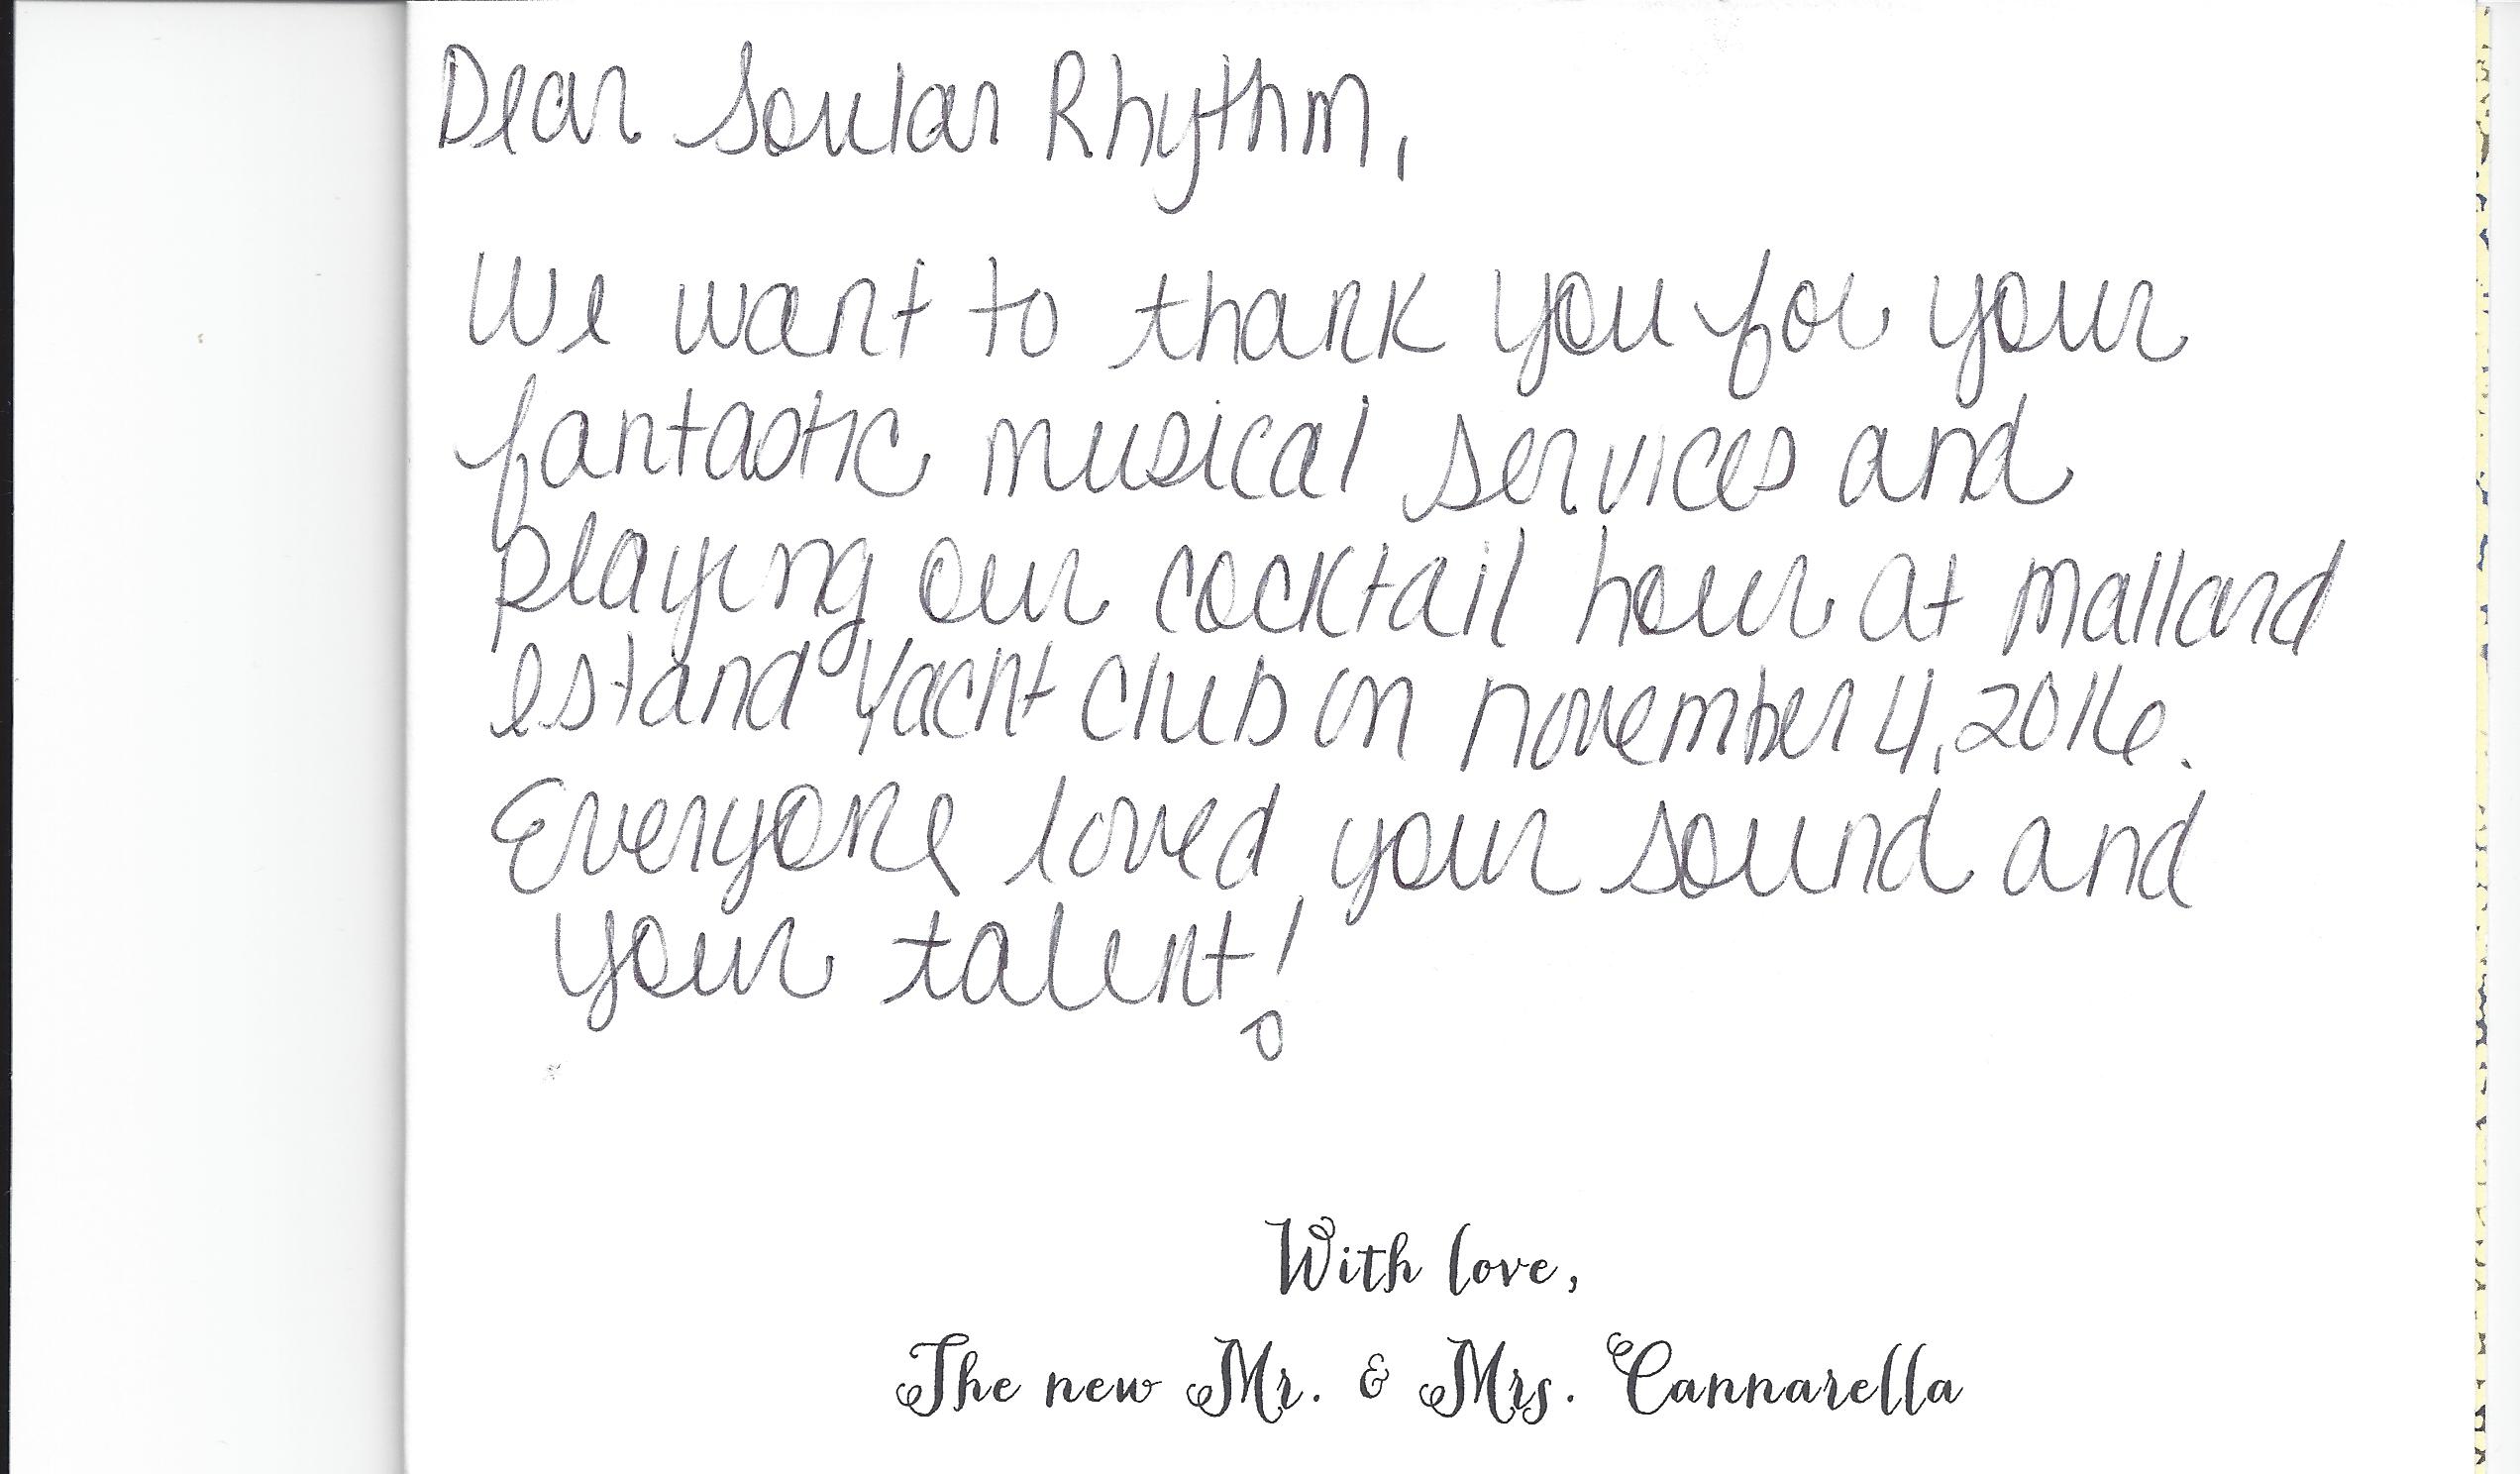 Dear Soular Rhythm,
We want to thank you for your
fantastic musical services and
playing our cocktail hour at Mallard
Island Yacht Club on November 4, 2016.
Everyone loved your sound and
your talent!
With love,
The new Mr. & Mrs. Cannarella